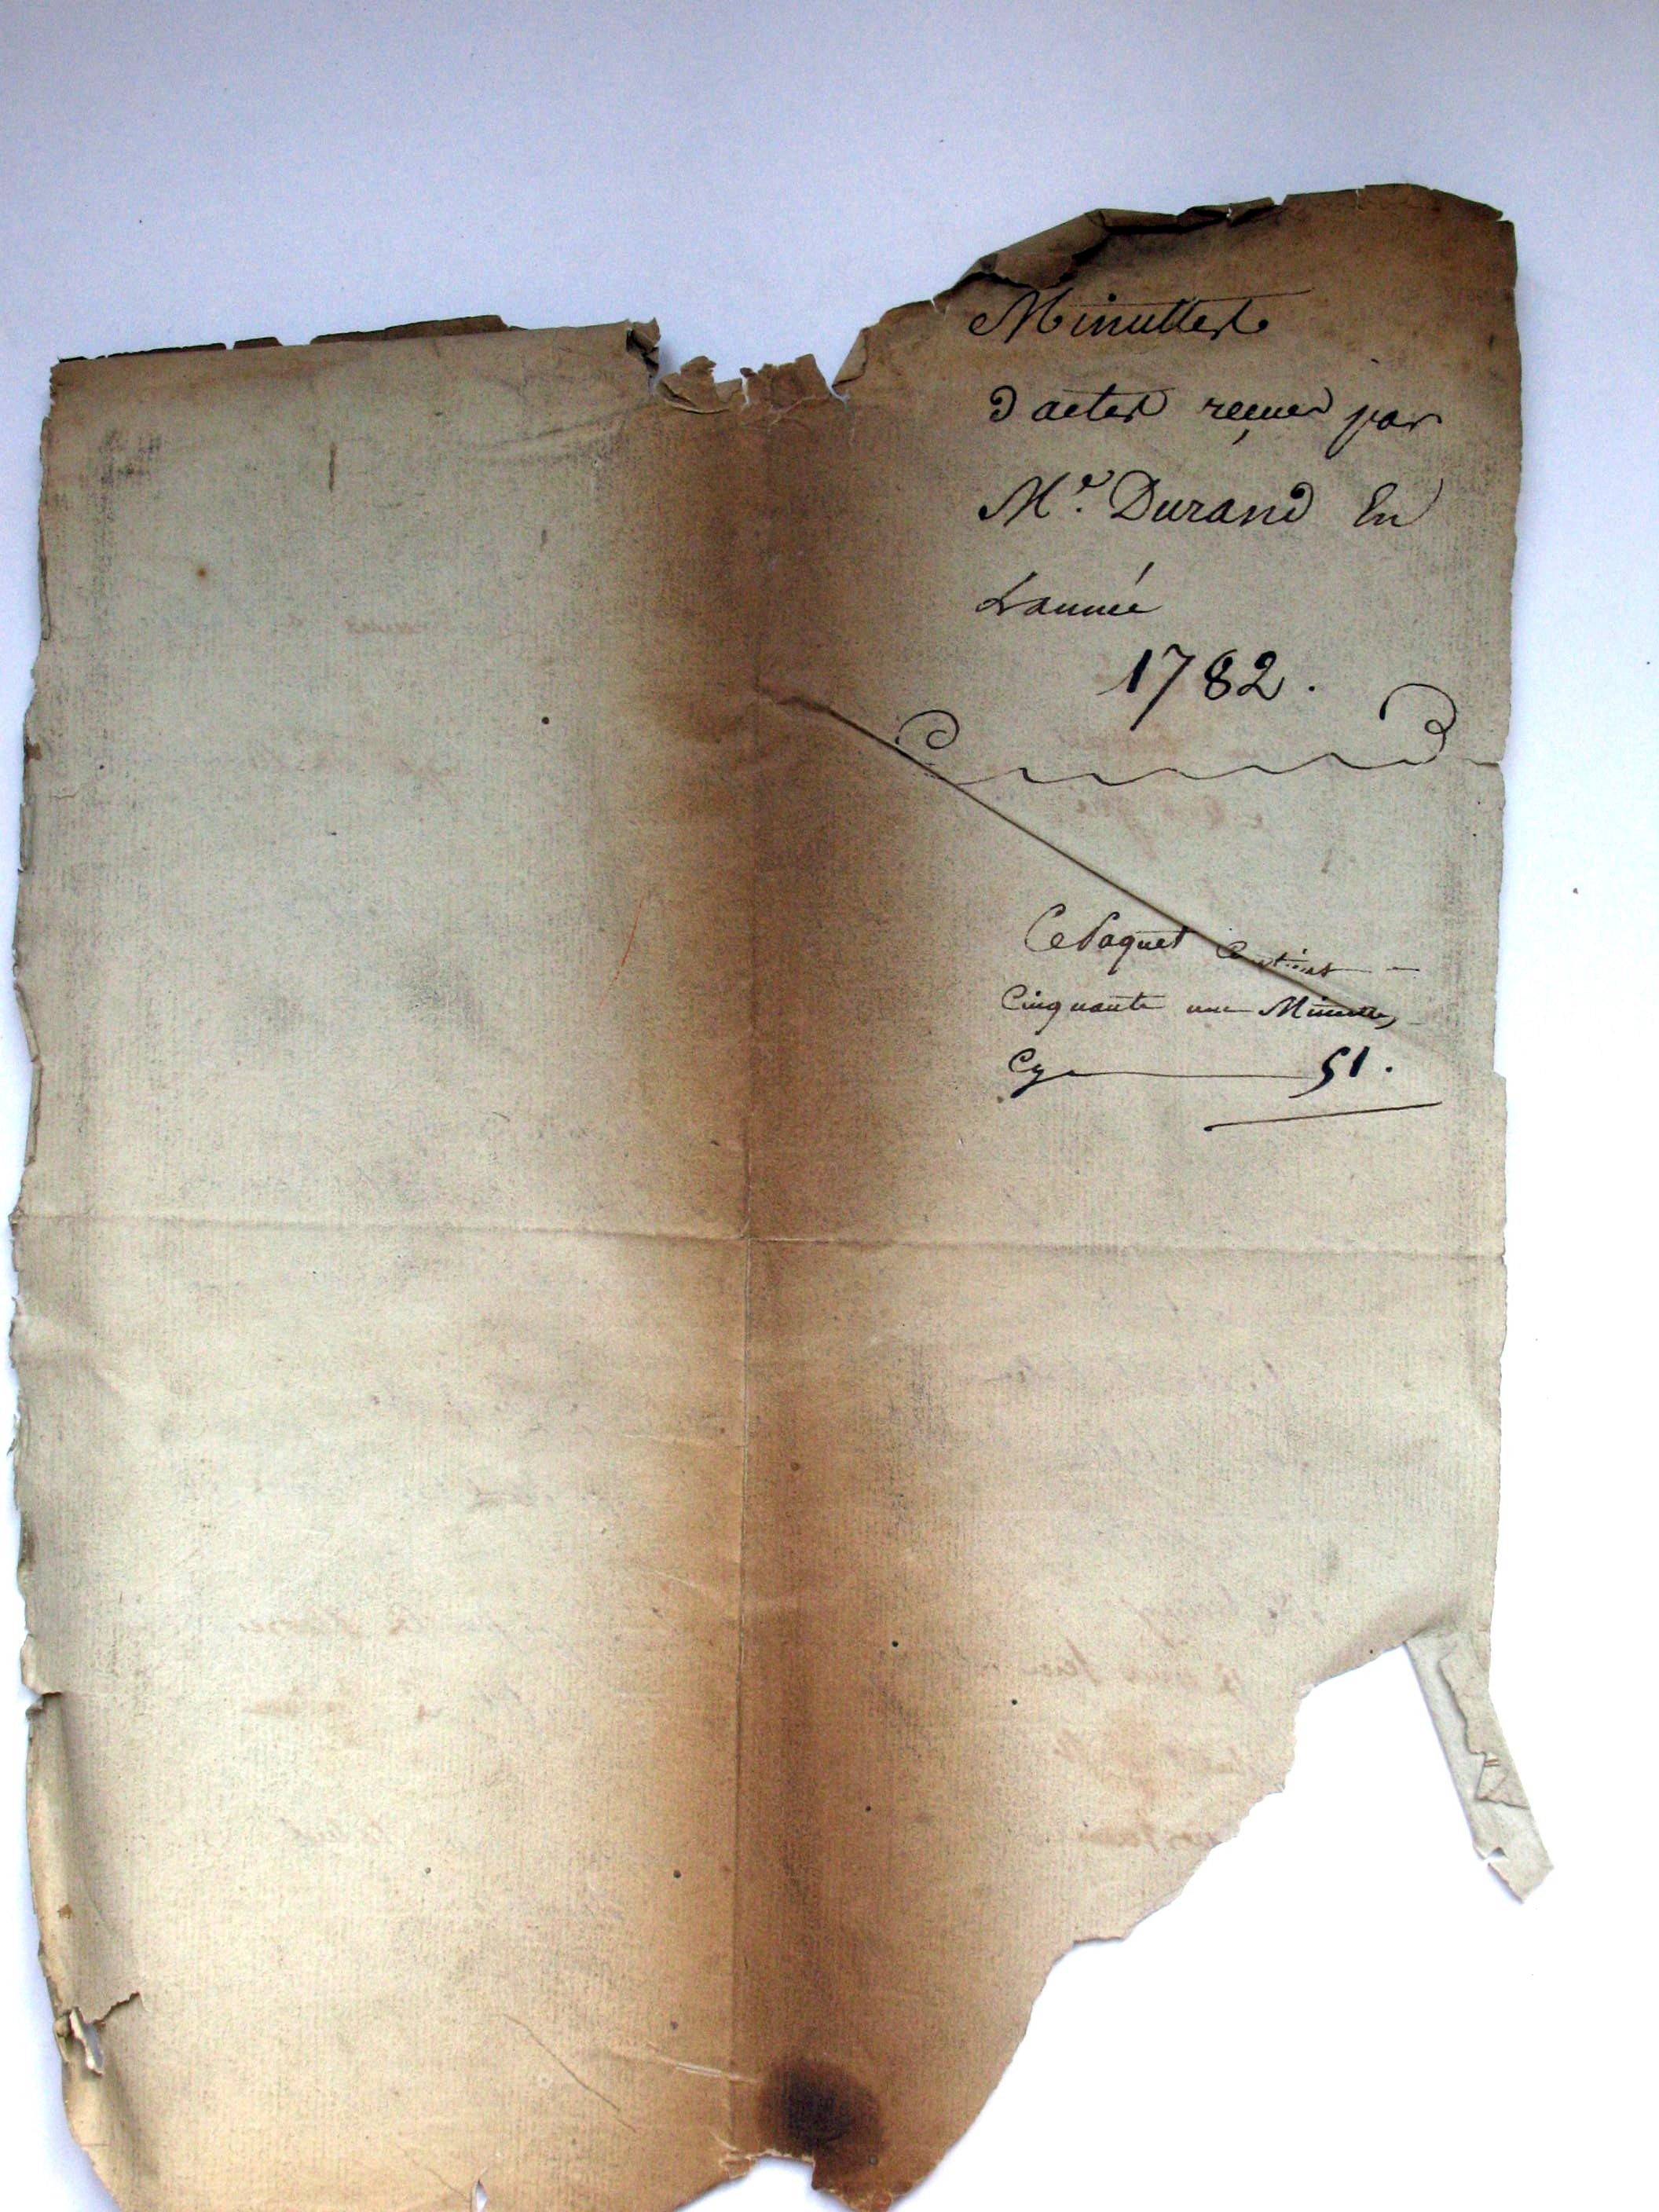 Minuttes
d'actes reçues par
Me. Durand En
L'année
1782.
Ce Paquet Contient
Cinquante une Minuttes,
Cy 51.